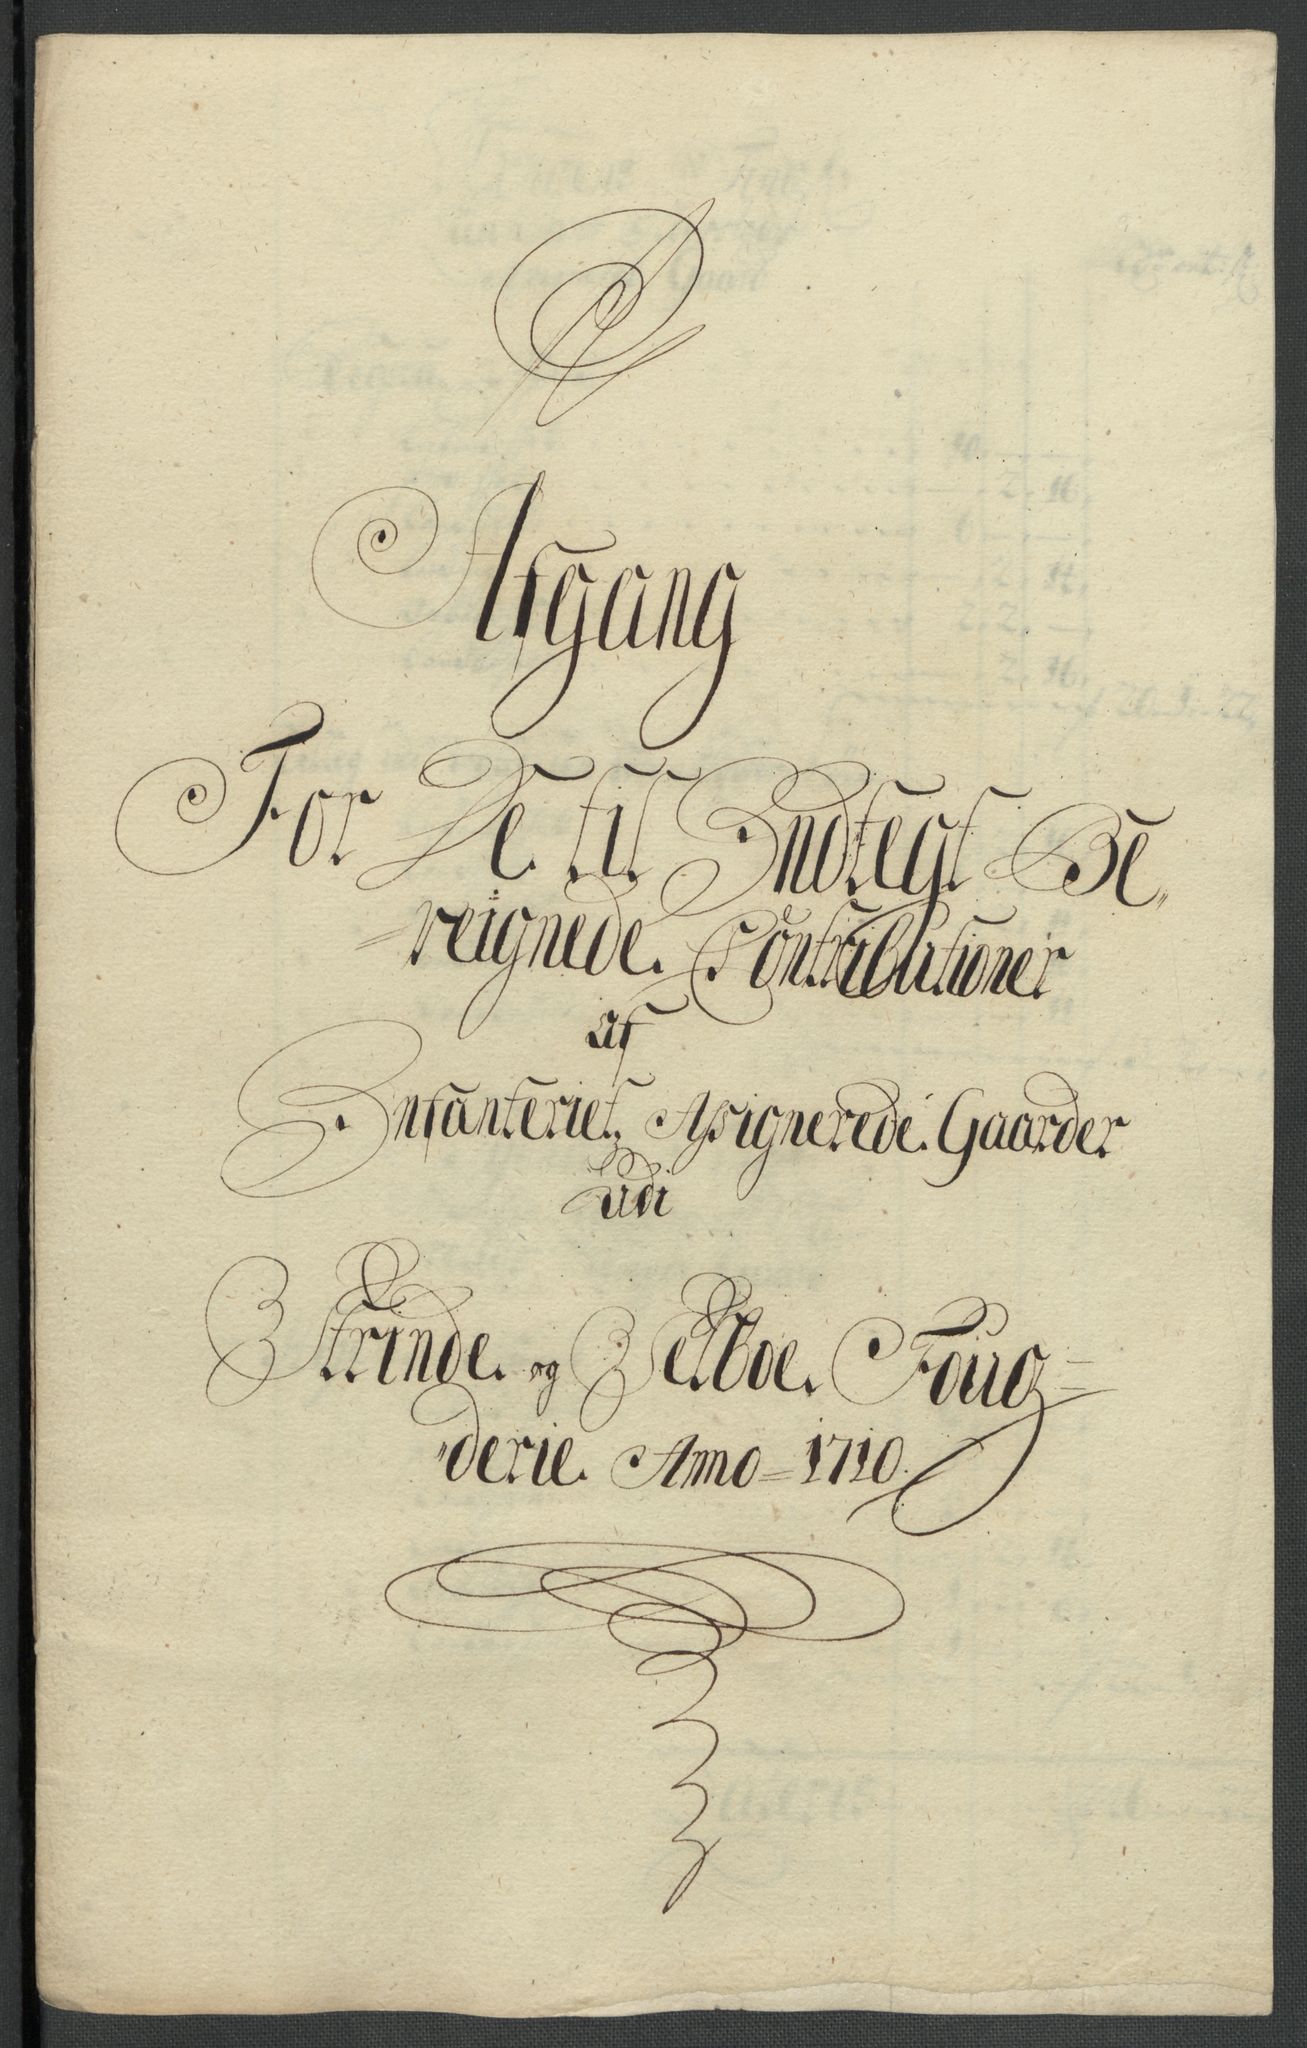 Afgang
For De til Indtegt Be„
=reignede Contributioner
af
Infanteriets Assignerede Gaarder
udi
Strinde og Selboe Foug=
„derie Anno = 1710.